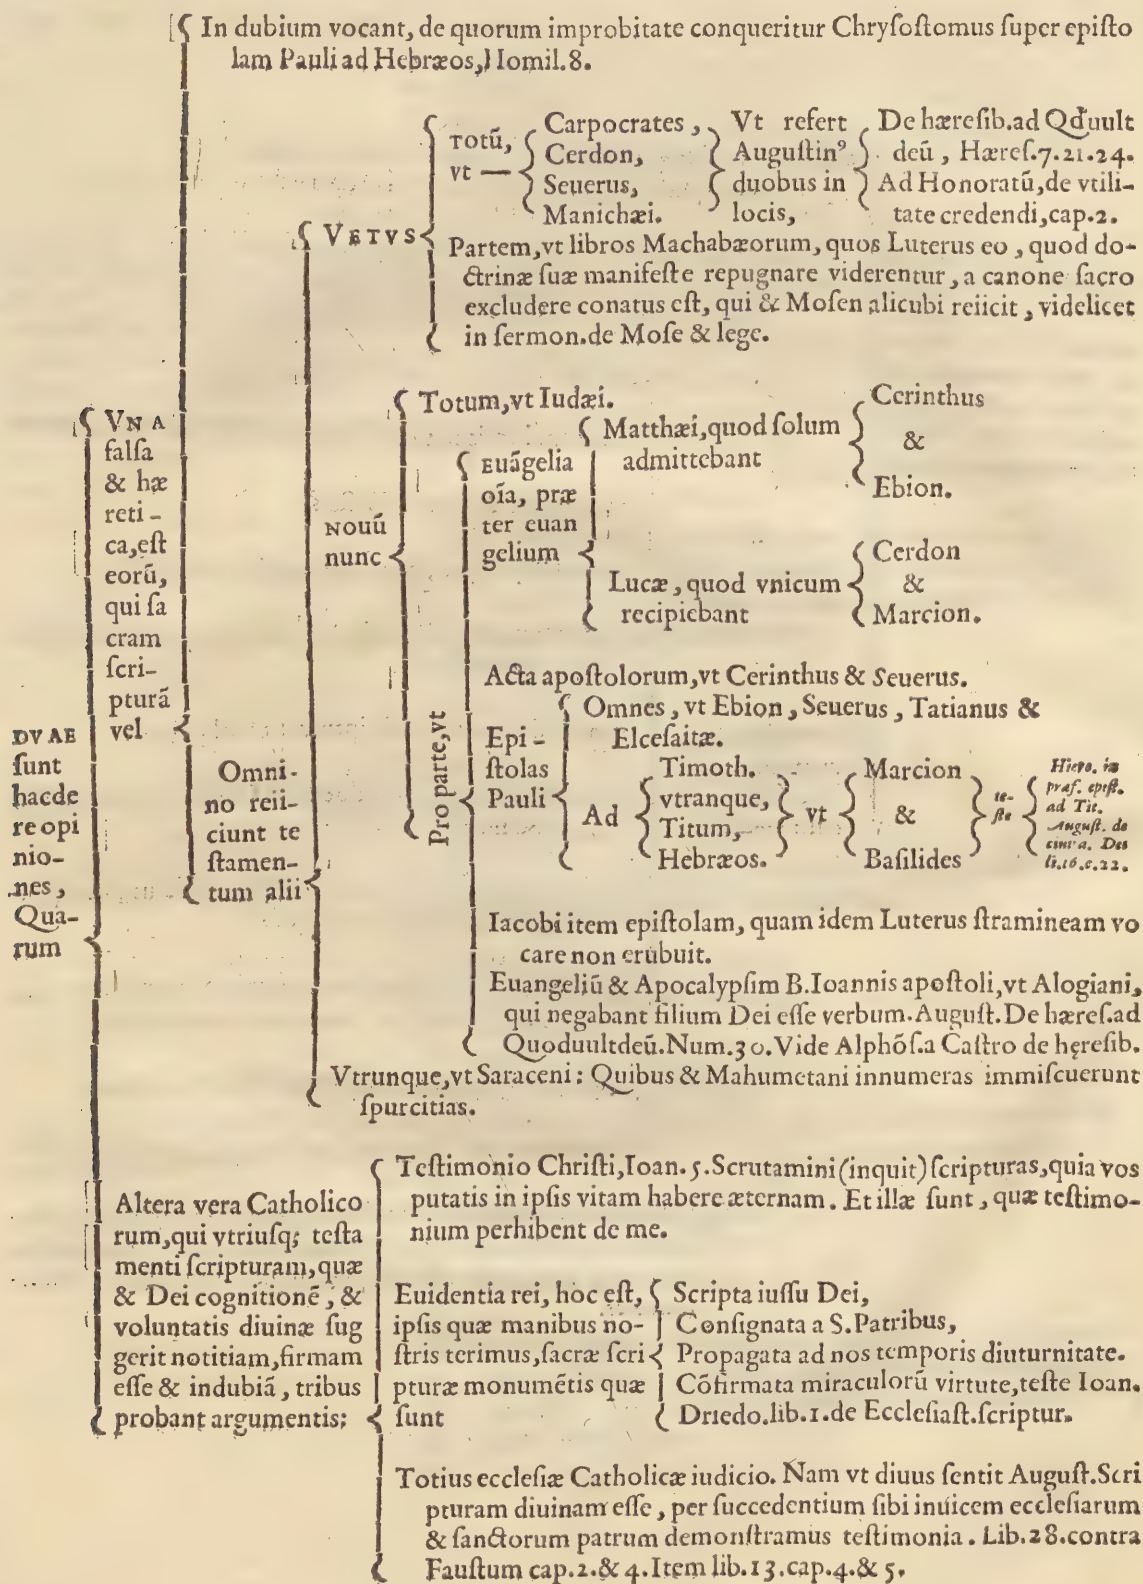 In dubium vocant, de quorum improbitate conqueritur Chryſoſtomus ſuper epiſto
lam Pauli ad Hebræos, Homil. 8.
DVAE
ſunt
hacde
re opi
nio-
nes,
Qua-
rum
VNA
falſa
& hæ
reti-
ca, eſt
eorū,
qui ſa
cram
ſcri-
pturā
vel
Omni-
no reii-
ciunt te
ſtamen-
tum alii
VETVS
Totū,
vt —
Carpocrates,
Cerdon,
Seuerus,
Manichæi.
Vt refert
Auguſtin⁹
duobus in
locis,
De hæreſib. ad Qđuult
deū, Hæreſ. 7. 21. 24.
Ad Honoratū, de vtili-
tate credendi, cap. 2.
Partem, vt libros Machabæorum, quos Luterus eo, quod do-
ctrinæ ſuæ manifeſte repugnare viderentur, a canone ſacro
excludere conatus eſt, qui & Moſen alicubi reiicit, videlicet
in ſermon. de Moſe & lege.
Nouū
nunc
Totum, vt Iudæi.
Pro parte, vt
Euāgelia
oīa, præ
ter euan
gelium
Matthæi, quod ſolum
admittebant
Cerinthus
&
Ebion.
Lucæ, quod vnicum
recipiebant
Cerdon
&
Marcion.
Acta apoſtolorum, vt Cerinthus & Seuerus.
Epi-
ſtolas
Pauli
Omnes, vt Ebion, Seuerus, Tatianus &
Elceſaitæ.
Ad
Timoth.
vtranque,
Titum,
Hebræos.
vt
Marcion
&
Baſilides
te-
ſte
Hiero. in
præf. epiſt.
ad Tit.
Auguſt. de
ciuita. Dei
li. 16. c. 22.
Iacobi item epiſtolam, quam idem Luterus ſtramineam vo
care non erubuit.
Euangeliū & Apocalypſim B. Ioannis apoſtoli, vt Alogiani,
qui negabant filium Dei eſſe verbum. Auguſt. De hæreſ. ad
Quoduultdeū. Num. 30. Vide Alphōſ. a Caſtro de hęreſib.
Vtrunque, vt Saraceni: Quibus & Mahumetani innumeras immiſcuerunt
ſpurcitias.
Altera vera Catholico
rum, qui vtriuſq; teſta
menti ſcripturam, quæ
& Dei cognitionē, &
voluntatis diuinæ ſug
gerit notitiam, firmam
eſſe & indubiā, tribus
probant argumentis:
Teſtimonio Chriſti, Ioan. 5. Scrutamini (inquit) ſcripturas, quia vos
putatis in ipſis vitam habere æternam. Et illæ ſunt, quæ teſtimo-
nium perhibent de me.
Euidentia rei, hoc eſt,
ipſis quæ manibus no-
ſtris terimus, ſacræ ſcri
pturæ monumētis quæ
ſunt
Scripta iuſſu Dei,
Conſignata a S. Patribus,
Propagata ad nos temporis diuturnitate.
Cōfirmata miraculorū virtute, teſte Ioan.
Driedo. lib. 1. de Eccleſiaſt. ſcriptur.
Totius eccleſiæ Catholicæ iudicio. Nam vt diuus ſentit Auguſt. Scri
pturam diuinam eſſe, per ſuccedentium ſibi inuicem eccleſiarum
& ſanctorum patrum demonſtramus teſtimonia. Lib. 28. contra
Fauſtum cap. 2. & 4. Item lib. 13. cap. 4. & 5.